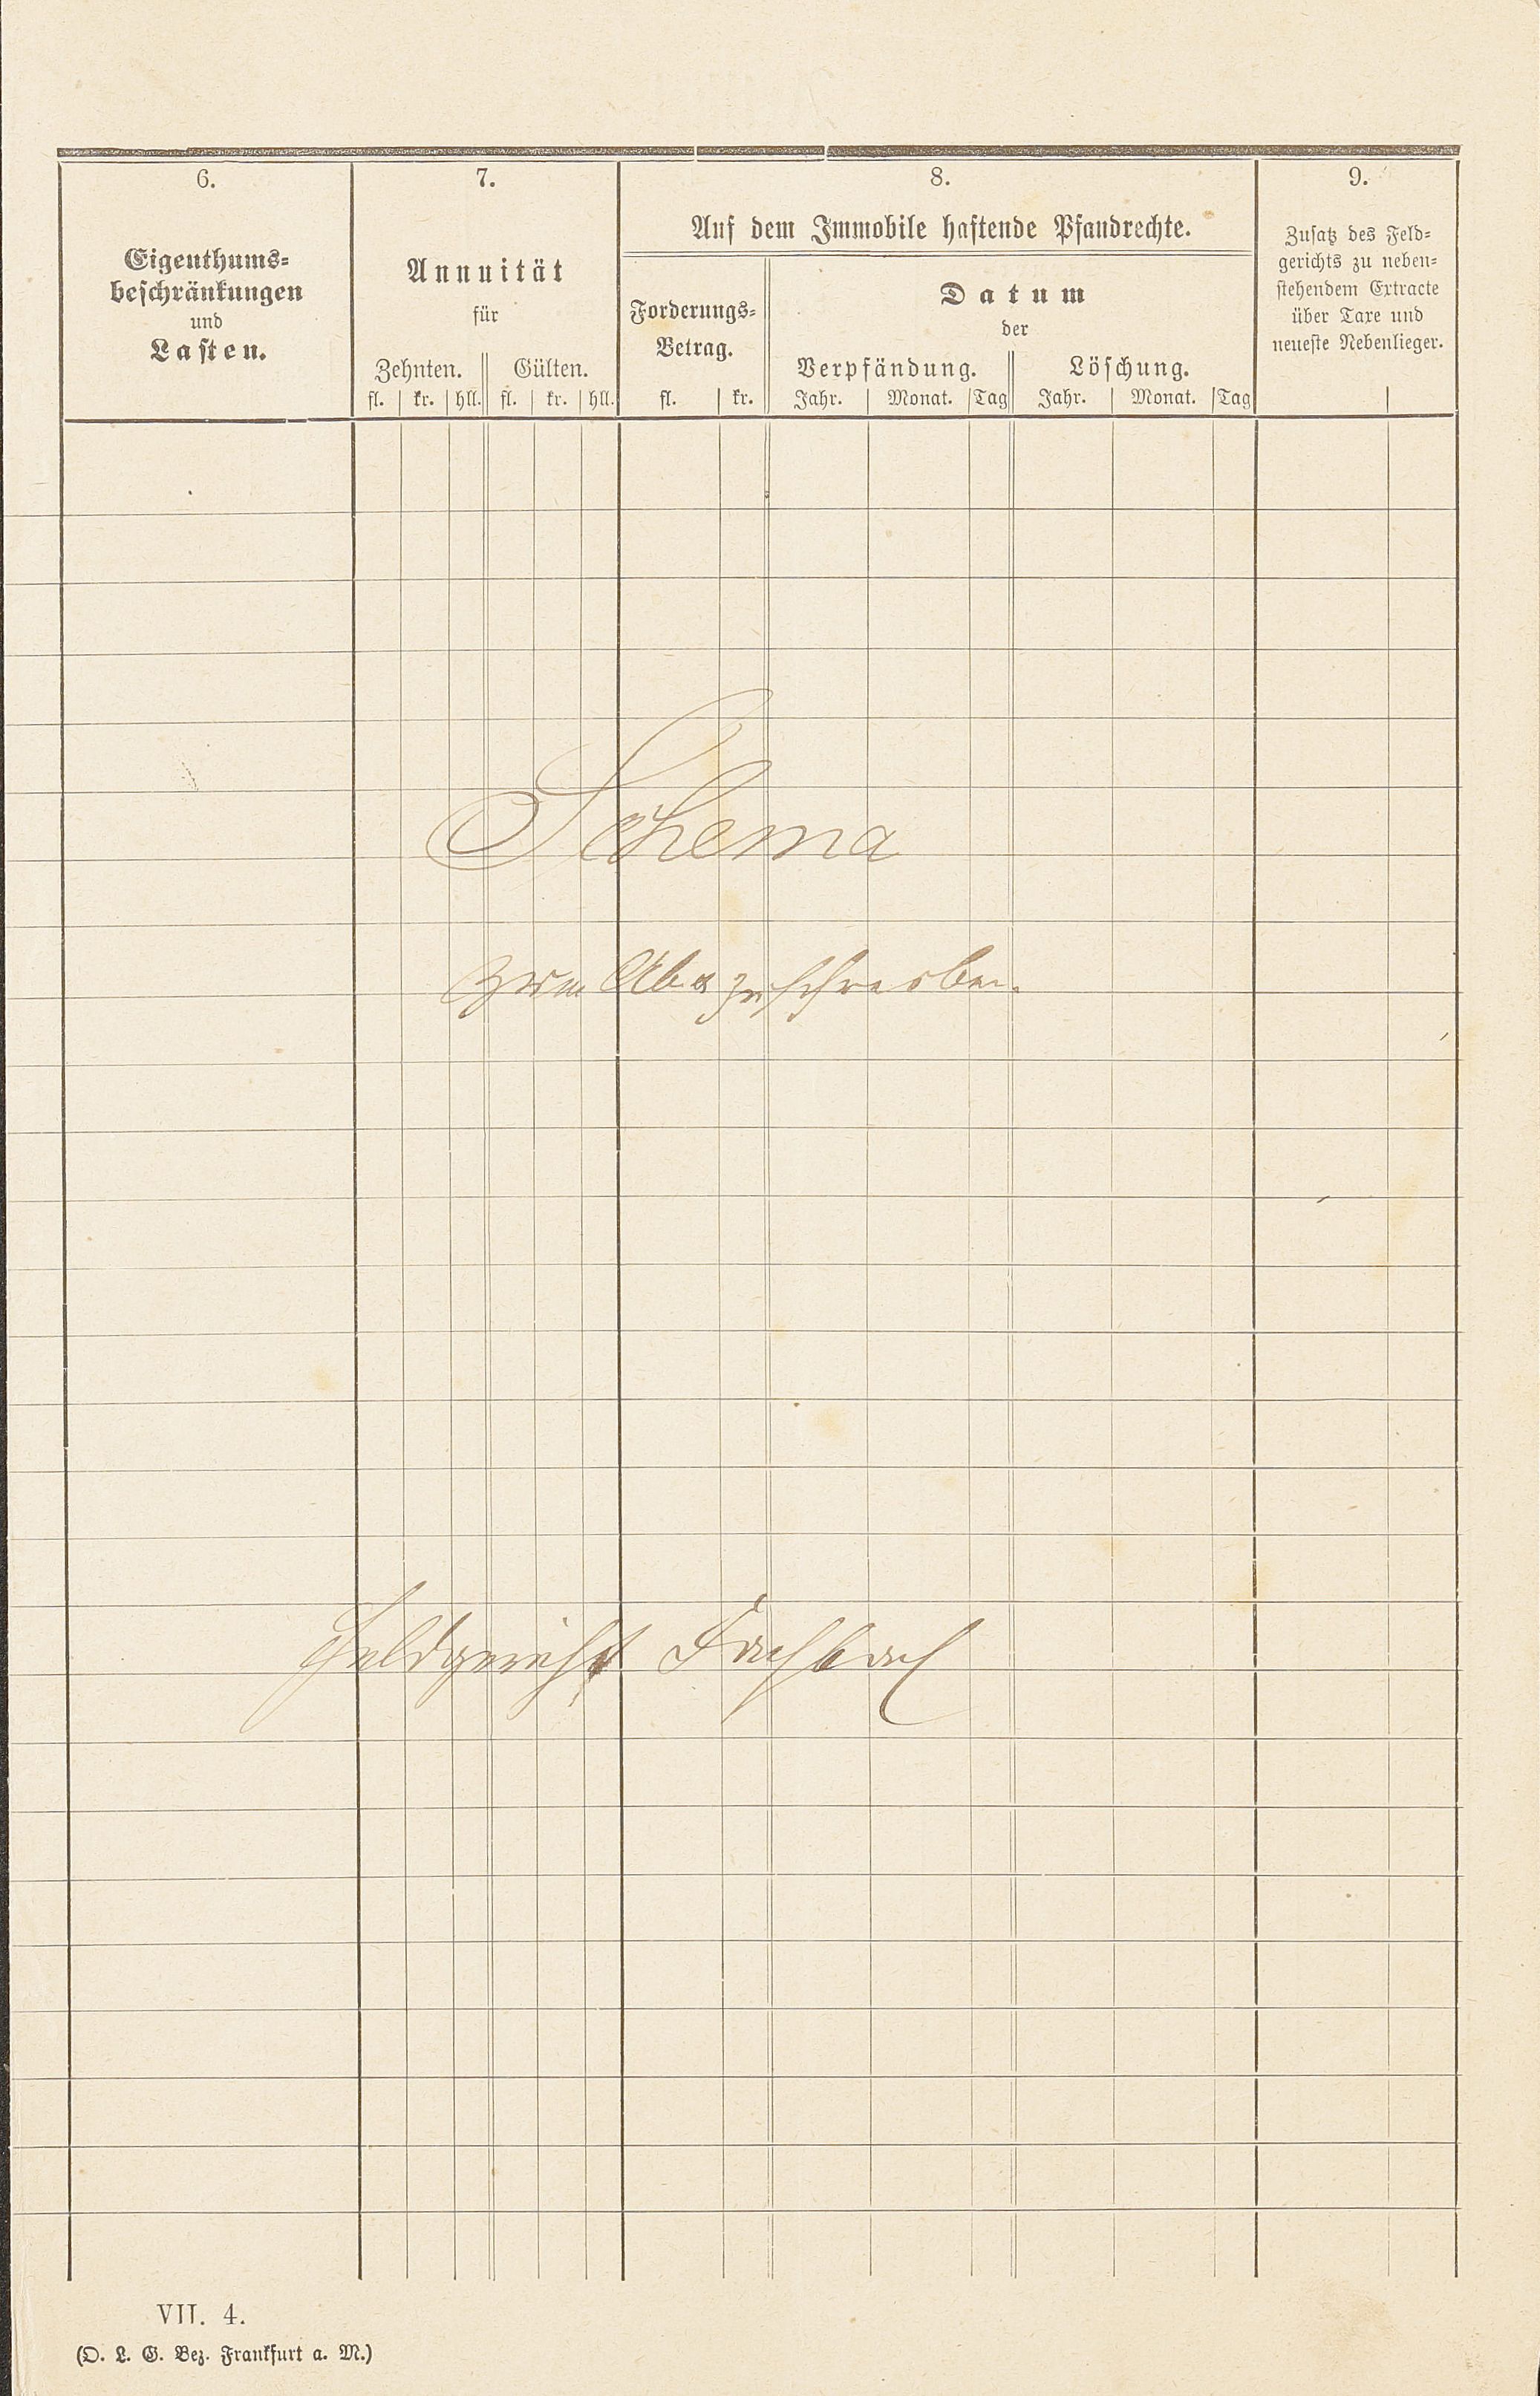 6.
Eigenthums=
beschränkungen
und
Lasten.
7.
Annuität
für
Zehnten. Gülten.
fl. kr. hll. fl. kr. hll.
8.
Auf dem Immobile haftende Pfandrechte.
Forderungs=
Betrag.
fl. kr.
Datum
der
Verpfändung. Löschung.
Jahr. Monat. Tag Jahr. Monat. Tag
9.
Zusatz des Feld=
gerichts zu neben=
stehendem Extracte
über Taxe und
neueste Nebenlieger.
Schema
zum Ab & zuschreiben.
Feldgericht Fachbach
VII. 4.
(O. L. G. Bez. Frankfurt a. M.)